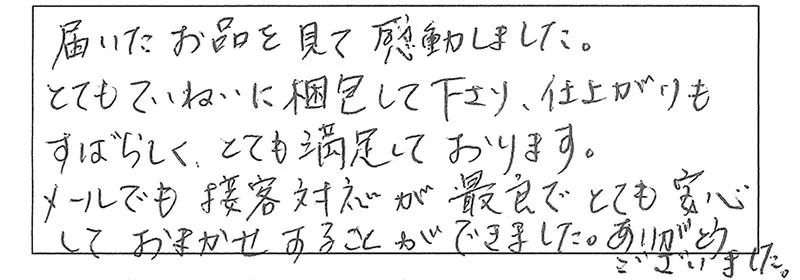 届いたお品を見て感動しました。
とてもていねいに梱包して下さり、仕上がりも
すばらしく、とても満足しております。
メールでも接客対応が最良でとても安心
しておまかせすることができました。ありがとう
ございました。